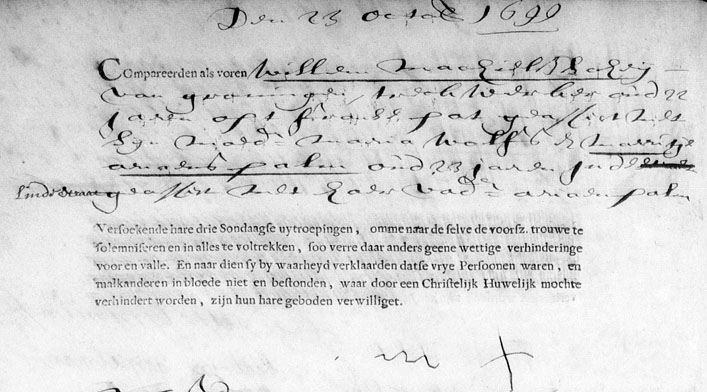 Den 23 octob 1699
Compareerden als voren Willem Machielsz
van groningen oud 22
Jaren opt franse pat geassist met
sijn moed Maria & Marritje
ariaens palm oud 23 Jaren Inde
Linde straat geassist met haer vad ariaen palm
Versoekende hare drie Sondaagse uytroepingen, omme naar de selve de voorsz. trouwe te
solemniseren en in alles te voltrekken, soo verre daar anders geene wettige verhinderinge
voor en valle. En naar dien sy by waarheyd verklaarden datse vrye Persoonen waren, en
malkanderen in bloede niet en bestonden, waar door een Christelijk Huwelijk mochte
verhindert worden, zijn hun hare geboden verwilliget.